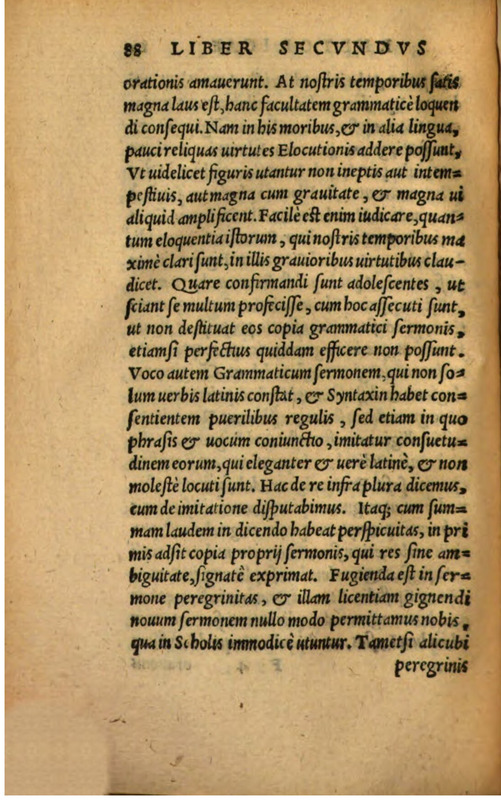 88 LIBER SECVNDVS
orationis amauerunt. At nostris temporibus satis
magna laus est, hanc facultatem grammaticè loquen
di consequi. Nam in his moribus, & in alia lingua,
pauci reliquas uirtutes Elocutionis addere possunt,
Vt uidelicet figuris utantur non ineptis aut intem=
pestiuis, aut magna cum grauitate, & magna ui
aliquid amplificent. Facilè est enim iudicare, quan=
tum eloquentia istorum, qui nostris temporibus ma
ximè clari sunt, in illis grauioribus uirtutibus clau-
dicet. Quare confirmandi sunt adolescentes, ut
sciant se multum profecisse, cum hoc assecuti sunt,
ut non destituat eos copia grammatici sermonis,
etiamsi perfectius quiddam efficere non possunt.
Voco autem Grammaticum sermonem, qui non so=
lum uerbis latinis constat, & Syntaxin habet con=
sentientem puerilibus regulis, sed etiam in quo
phrasis & uocum coniunctio, imitatur consuetu=
dinem eorum, qui eleganter & uerè latinè, & non
molestè locuti sunt. Hac de re infra plura dicemus,
cum de imitatione disputabimus. Itaq; cum sum=
mam laudem in dicendo habeat perspicuitas, in pri
mis adsit copia proprij sermonis, qui res sine am=
biguitate, signatè exprimat. Fugienda est in ser=
mone peregrinitas, & illam licentiam gignendi
nouum sermonem nullo modo permittamus nobis,
qua in Scholis immodicè utuntur. Tametsi alicubi
peregrinis